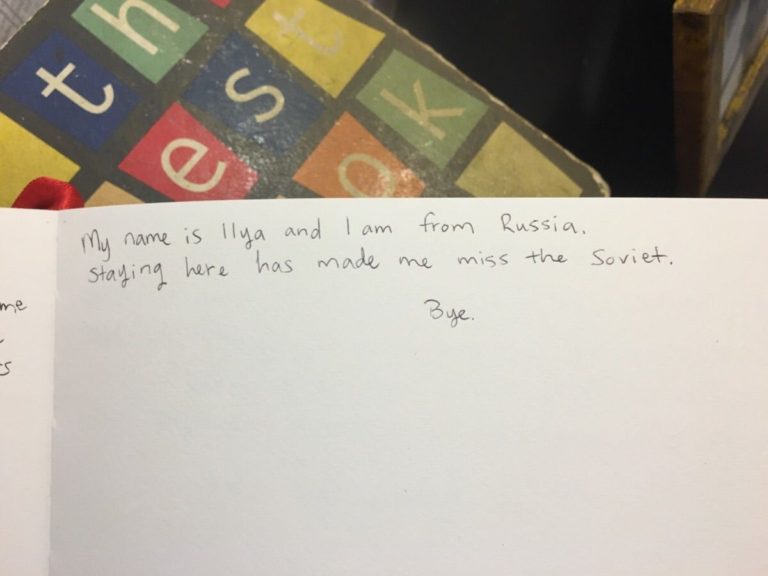 th
test
e ok
My name is Ilya and I am from Russia.
staying here has made me miss the Soviet.
Bye.
me
s